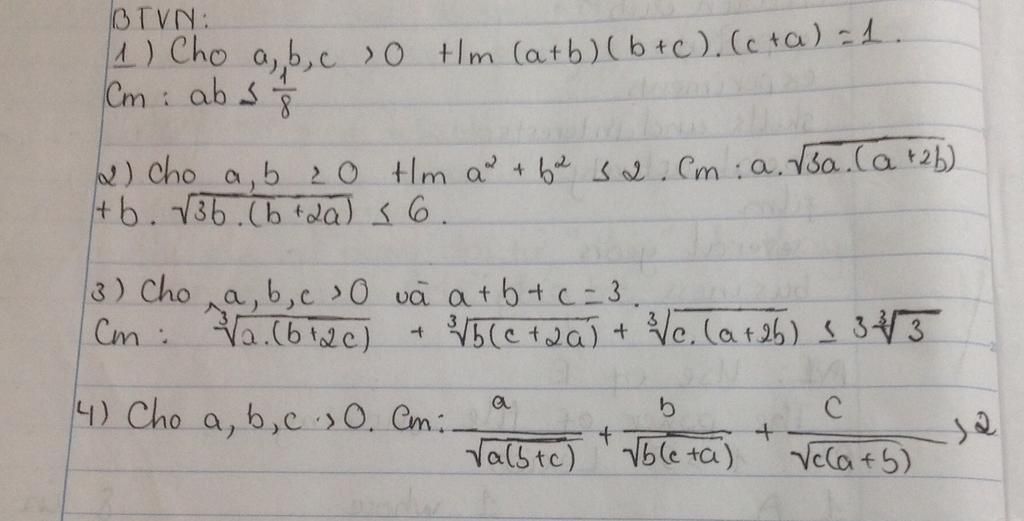 BTVN:
1) Cho a, b, c > 0 t/m (a+b)(b+c).(c+a) = 1.
Cm: ab ≤ 1/8
2) Cho a, b ≥ 0 t/m a² + b² ≤ 2. Cm: a.√3a.(a+2b)
+ b. √3b.(b+2a) ≤ 6.
3) Cho a, b, c > 0 và a + b + c = 3.
Cm: ∛a.(b+2c) + ∛b(c+2a) + ∛c.(a+2b) ≤ 3∛3
4) Cho a, b, c > 0. Cm: a/√a(b+c) + b/√b(c+a) + c/√c(a+b) > 2